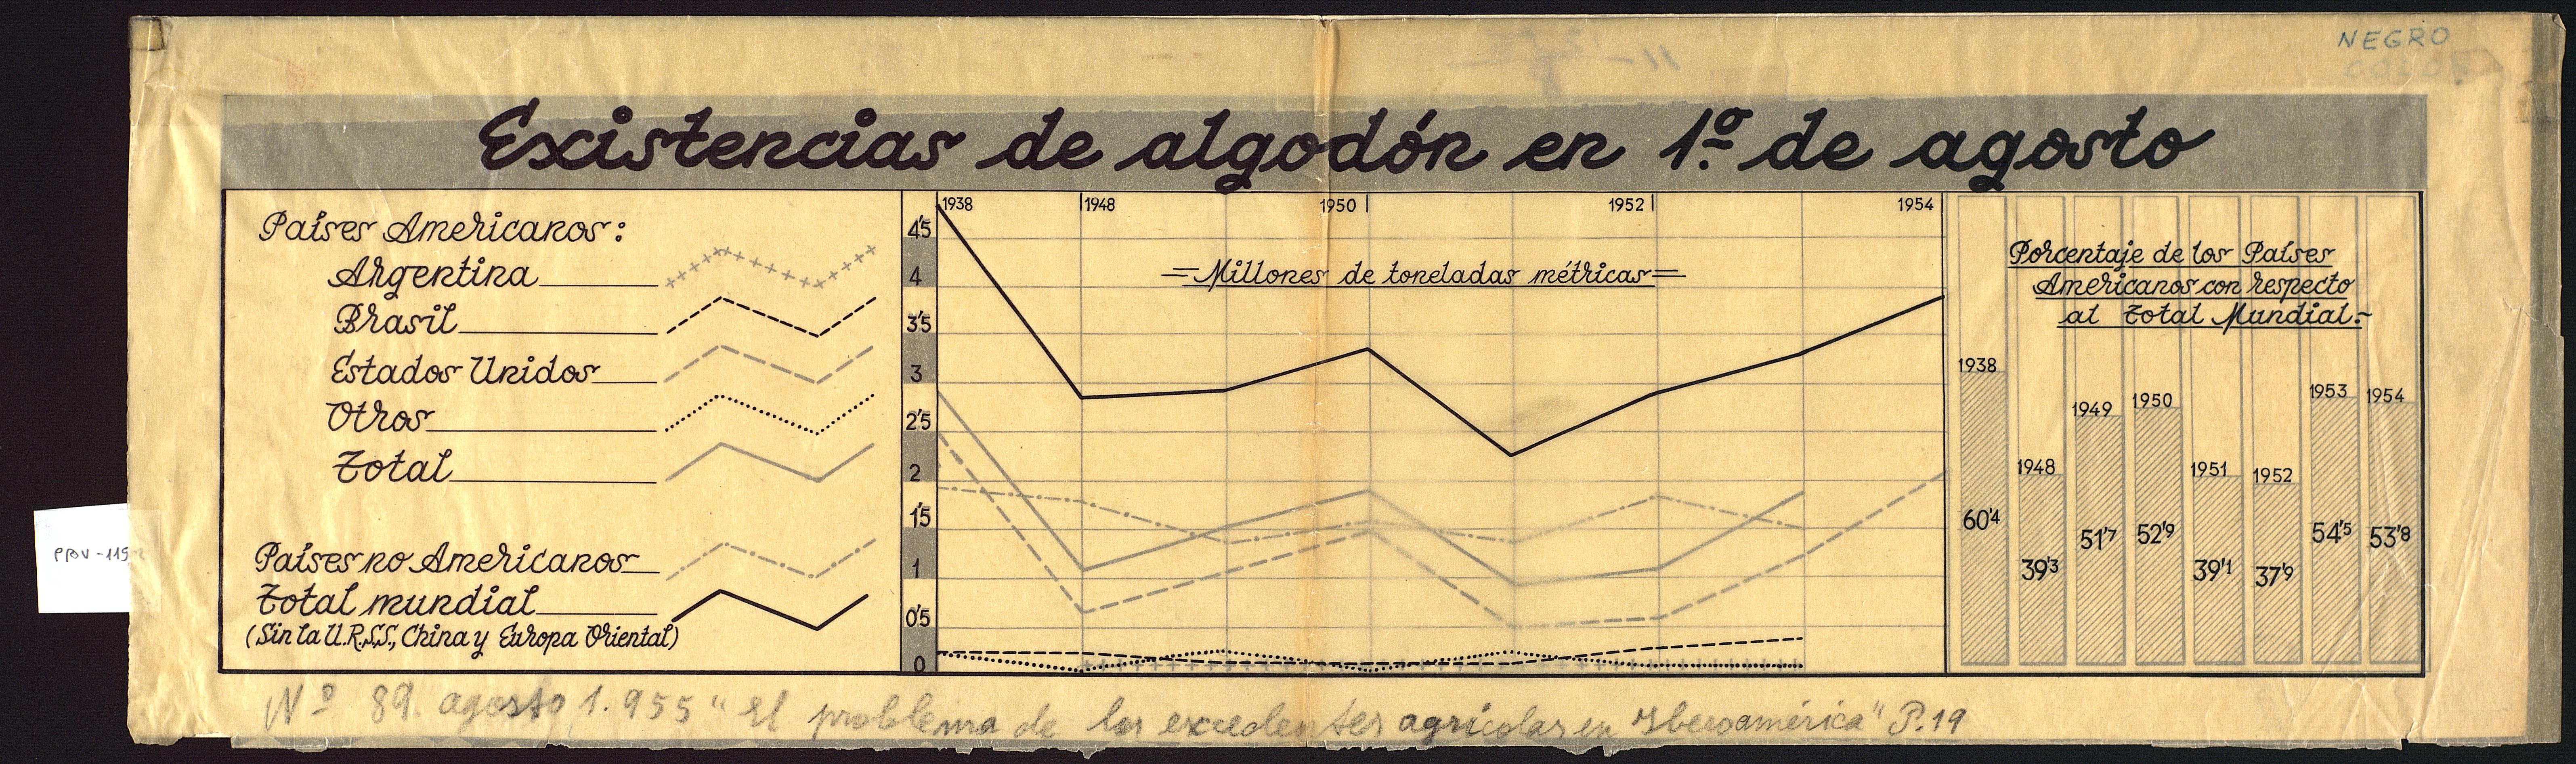 NEGRO
Existencias de algodón en 1º de agosto
Países Americanos:
Argentina
Brasil
Estados Unidos
Otros
Total
Países no Americanos
Total mundial
(Sin la U.R.S.S., China y Europa Oriental)
1938 1948 1950 1952 1954
=Millones de toneladas métricas=
4'5
4
3'5
3
2'5
2
1'5
1
0'5
0
Porcentaje de los Países
Americanos con respecto
al Total Mundial.-
1938 1948 1949 1950 1951 1952 1953 1954
60'4 39'3 51'7 52'9 39'1 37'9 54'5 53'8
PROV-115
Nº 89. agosto 1.955 "El problema de los excedentes agrícolas en Iberoamérica" P.19